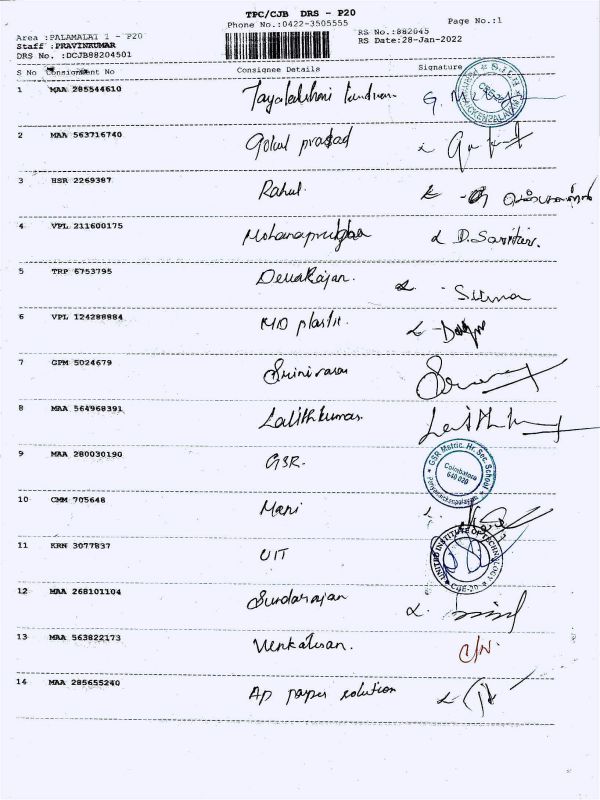 TPC/CJB DRS - P20
Phone No.:0422-3505555
Page No.:1
Area :PALAMALAI 1 - P20
RS No.:882045
Staff :PRAVINKUMAR
RS Date:28-Jan-2022
DRS No. :DCJB88204501
S No Consignment No Consignee Details Signature
1 MAA 285544610
2 MAA 563716740 Gokul prasad
3 HSR 2269387 Rahul.
4 VPL 211600175
5 TRP 6753795 Devarajan.
6 VPL 124288884 MD plastic.
7 GPM 5024679 Srinivasan
8 MAA 564968391 Lalithkumar
9 MAA 280030190 GSR. GSR Matric. Hr. Sec. School Coimbatore 640 020
10 CMM 705648 Mani
11 KRN 3077837 UIT UNITED INSTITUTE OF TECHNOLOGY CBE-20
12 MAA 268101104 Sundarajan
13 MAA 563822173 Venkatesan. C/N.
14 MAA 285655240 AP paper solution